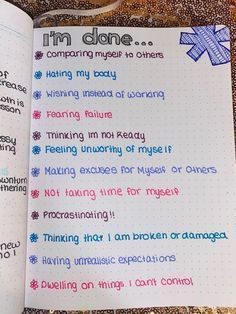 i'm done...
Comparing myself to others
Hating my body
Wishing instead of working
Fearing failure
Thinking im not Ready
Feeling unworthy of myself
Making excuses for Myself or Others
Not taking time for myself
Procrastinating!!
Thinking that I am broken or damaged
Having unrealistic expectations
Dwelling on things I Can't Control